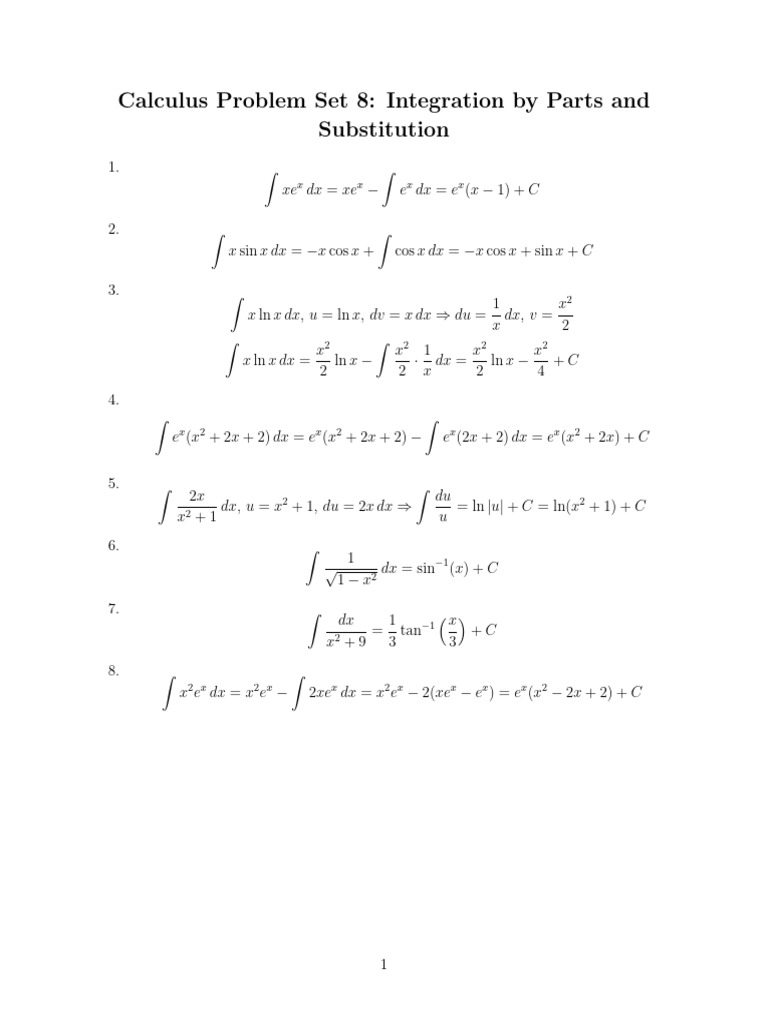 Calculus Problem Set 8: Integration by Parts and
Substitution
1.
∫ xeˣ dx = xeˣ − ∫ eˣ dx = eˣ(x − 1) + C
2.
∫ x sin x dx = −x cos x + ∫ cos x dx = −x cos x + sin x + C
3.
∫ x ln x dx, u = ln x, dv = x dx ⇒ du = 1/x dx, v = x²/2
∫ x ln x dx = x²/2 ln x − ∫ x²/2 · 1/x dx = x²/2 ln x − x²/4 + C
4.
∫ eˣ(x² + 2x + 2) dx = eˣ(x² + 2x + 2) − ∫ eˣ(2x + 2) dx = eˣ(x² + 2x) + C
5.
∫ 2x/(x² + 1) dx, u = x² + 1, du = 2x dx ⇒ ∫ du/u = ln |u| + C = ln(x² + 1) + C
6.
∫ 1/√(1 − x²) dx = sin⁻¹(x) + C
7.
∫ dx/(x² + 9) = 1/3 tan⁻¹ (x/3) + C
8.
∫ x²eˣ dx = x²eˣ − ∫ 2xeˣ dx = x²eˣ − 2(xeˣ − eˣ) = eˣ(x² − 2x + 2) + C
1